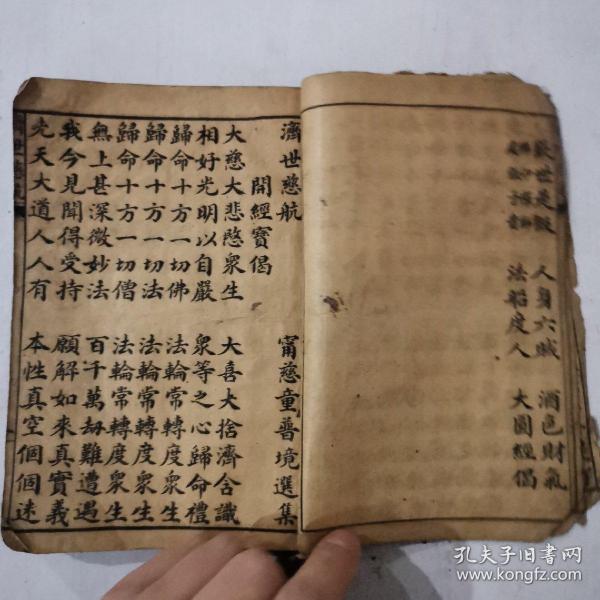 歎世是假　人身六賊　酒色財氣
法船度人　大圓經偈
濟世慈航　甯慈童普境選集
開經寶偈
大慈大悲愍衆生　大喜大捨濟含識
相好光明以自嚴　衆等之心歸命禮
歸命十方一切佛　法輪常轉度衆生
歸命十方一切法　法輪常轉度衆生
歸命十方一切僧　法輪常轉度衆生
無上甚深微妙法　百千萬劫難遭遇
我今見聞得受持　願解如來真實義
先天大道人人有　本性真空個個迷
孔夫子旧書网
www.kongfz.com